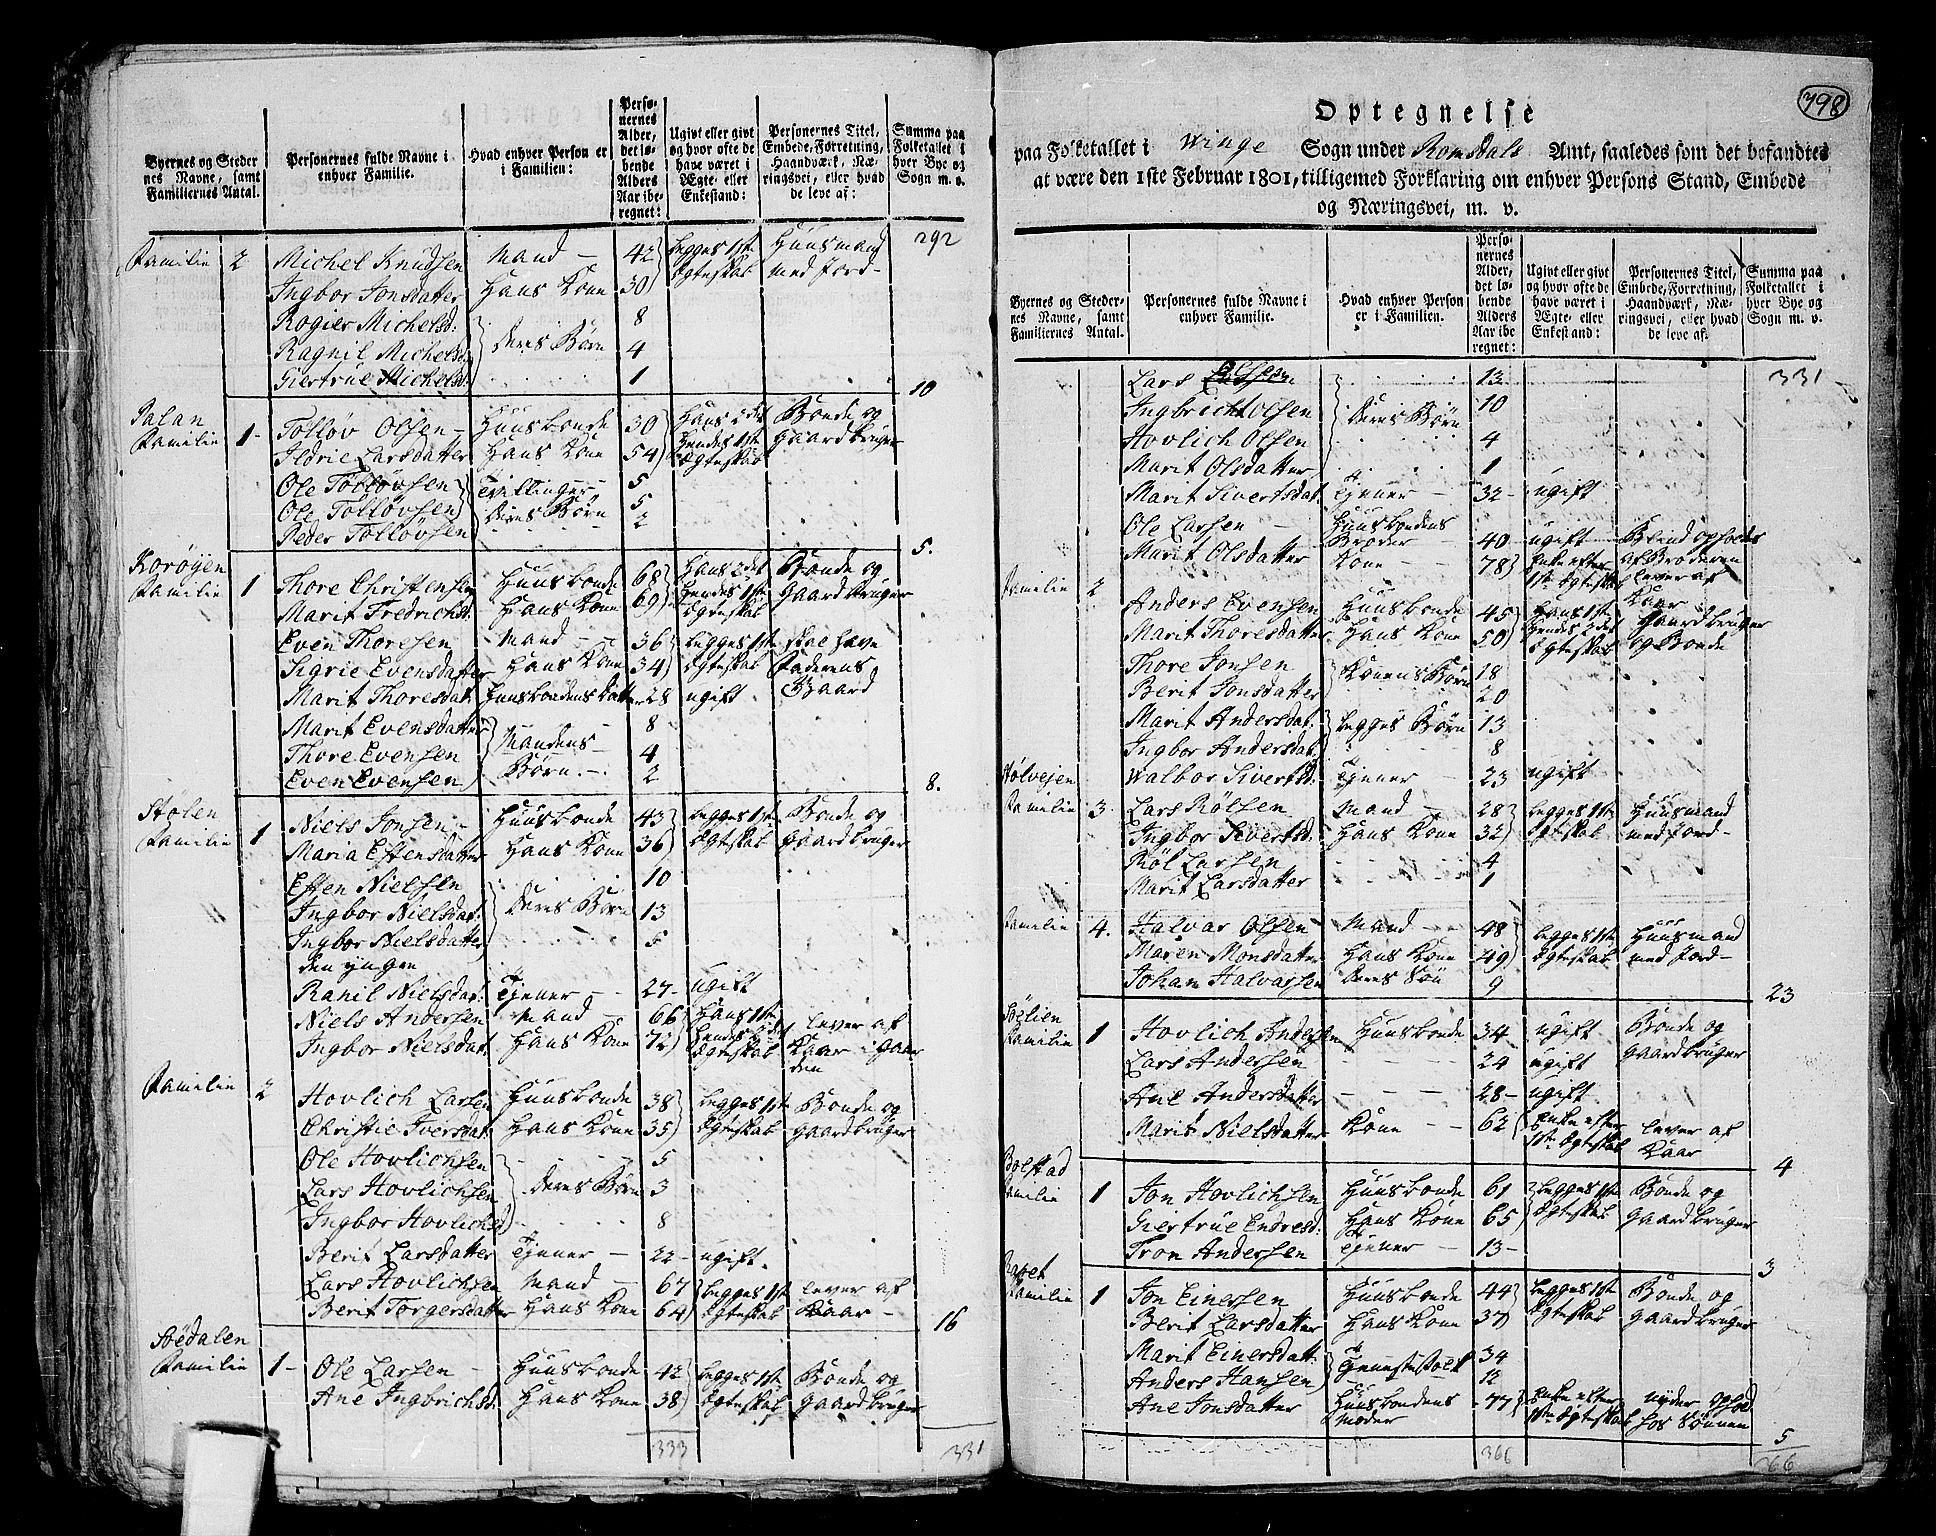 Byernes og Steder
nes Navne, samt
Familiernes Antal.
Personernes fulde Navne i
enhver Familie.
Hvad enhver Person er
i Familien:
Perso-
nernes
Alder,
det lø-
bende
Alders
Aar ibe-
regnet:
Ugivt eller givt
og hvor ofte de
have været i
Ægte- eller
Enkestand:
Personernes Titel,
Embede, Forretning,
Haandværk, Næ-
ringsvei, eller hvad
de leve af:
Summa paa
Folketallet i
hver Bye og
Sogn m. v.
292
Familie 2 Michel Knudsen Mand – 42 begges 1ste Huusmand
Ingbor Jonsdatter Hans Kone 30 Ægteskab med Jord –
Rogier Michelsd: 8
Ragnil Michelsd: Deres Børn 4
Giertrue Michelsd: 1
10
Familie 1 – Tolløv Olsen – Huusbonde 30 Hans 2det Bonde og
Ildrie Larsdatter Hans Kone 54 Hendes 1ste Gaardbruger
Ægteskab
Ole Tolløvsen Tvillinger – 5
Ole Tolløvsen Deres Børn 5
Peder Tolløvsen 2
5.
Korøyen
Familie 1 Thore Christensen Huusbonde 68 Hans 2det Bonde og
Marit Fredrichsd: Hans Kone 69 Hendes 1ste Gaardbruger
Ægteskab
Even Thoresen Mand – 36 begges 1ste skal have
Sigrie Evensdatter Hans Kone 34 Ægteskab Faderens
Marit Thoresdat: Huusbondens Datter 28 ugift Gaard
Marit Evensdatter 8
Thore Evensen Mandens 4
Even Evensen Børn. – 2
8.
Stølen
Familie 1 Niels Jonsen – Huusbonde 43 begges 1ste Bonde og
Maria Effensdatter Hans Kone 36 Ægteskab Gaardbruger
Effen Nielsen 10
Ingbor Nielsdat: Deres Børn 13
Ingbor Nielsdatter 5
den yngre
Ranil Nielsdat: Tjener – 27 – ugift
Niels Andersen Mand – 66 Hans 1ste lever af
Ingbor Nielsdat: Hans Kone 72 Hendes 2det Kaar i Gaar
Ægteskab den
Familie 2 Hovlich Larsen Huusbonde 38 begges 1ste Bonde og
Christie Iversdat: Hans Kone 35 Ægteskab Gaardbruger
Ole Hovlichsen 5
Lars Hovlichsen Deres Børn 3
Ingbor Hovlichsd 8
Berit Larsdatter Tjener – 22 – ugift.
Lars Hovlichsen Mand – 67 begges 1ste lever af
Berit Torgersdatter Hans Kone 64 Ægteskab Kaar –
16
Støedalen
Familie 1 – Ole Larsen – Huusbonde 42 begges 1ste Bonde og
Ane Ingbrichsd: Hans Kone 38 Ægteskab Gaardbruger
333 331
398
Optegnelse
paa Folketallet i Winge Sogn under Romsdals Amt, saaledes som det befandtes
at være den 1ste Februar 1801, tilligemed Forklaring om enhver Persons Stand, Embede
og Næringsvei, m. v.
Byernes og Steder-
nes Navne, samt
Familiernes Antal.
Personernes fulde Navne i
enhver Familie.
Hvad enhver Person
er i Familien.
Perso-
nernes
Alder,
det lø-
bende
Alders
Aar ibe-
regnet:
Ugivt eller givt
og hvor ofte de
have været i
Ægte- eller
Enkestand:
Personernes Titel,
Embede, Forretning,
Haandværk, Næ-
ringsvei, eller hvad
de leve af.
Summa paa
Folketallet i
hver Bye og
Sogn m. v.
331
Lars Olsen 13
Ingbricht Olsen Deres Børn 10
Hovlich Olsen 4
Marit Olsdatter 1
Marit Sivertsdat: Tjener – 32 – ugift
Ole Larsen – Huusbondens
Broder – 40 ugift Blind opholdes
Marit Olsdatter Kone – 78 Enke efter af Broderen
1ste Ægteskab lever af
Kaar
Familie 2 Anders Evensen Huusbonde 45 Hans 1ste Gaardbruger
Marit Thoresdatter Hans Kone 50 Hendes 2det og Bonde
Ægteskab
Thore Jonsen Konens Børn 18
Berit Jonsdatter 20
Marit Andersdat: begges Børn 13
Ingbor Andersdat: 8
Walbor Sivertsd: Tjener – 23 ugift
Hølvejen
Familie 3. Lars Rolsen Mand – 28 begges 1ste Huusmand
Ingbor Sivertsd: Hans Kone 32 Ægteskab med Jord –
Røl Larsen 4
Marit Larsdatter 1
Familie 4. Halvar Olsen Mand – 48 begges 1ste Huusmand
Maren Monsdatter Hans Kone 49 Ægteskab med Jord –
Johan Halvarsen Deres Søn 9
23
Familie 1 Hovlich Andersen Huusbonde 34 ugift Bonde og
Lars Andersen – – – 24 ugift Gaardbruger
Ane Andersdatter – – – 28 – ugift
Marit Nielsdatter Kone – – 62 Enke efter lever af
1ste Ægteskab Kaar
4
Bolstad
Familie 1 Jon Hovlichsen Huusbonde 61 begges 1ste Bonde og
Giertrue Endresd: Hans Kone 65 Ægteskab Gaardbruger
Tron Andersen Tjener – 13 –
3
Familie 1 Jon Einersen Huusbonde 44 begges 1ste Bonde og
Berit Larsdatter Hans Kone 37 Ægteskab Gaardbruger
Marit Einersdatt: 34
Anders Hansen Tjenestefolk 12
Ane Jonsdatter Huusbondens 77 Enke efter nyder ophold
Moder 1ste Ægteskab hos Sønnen
5
366 366